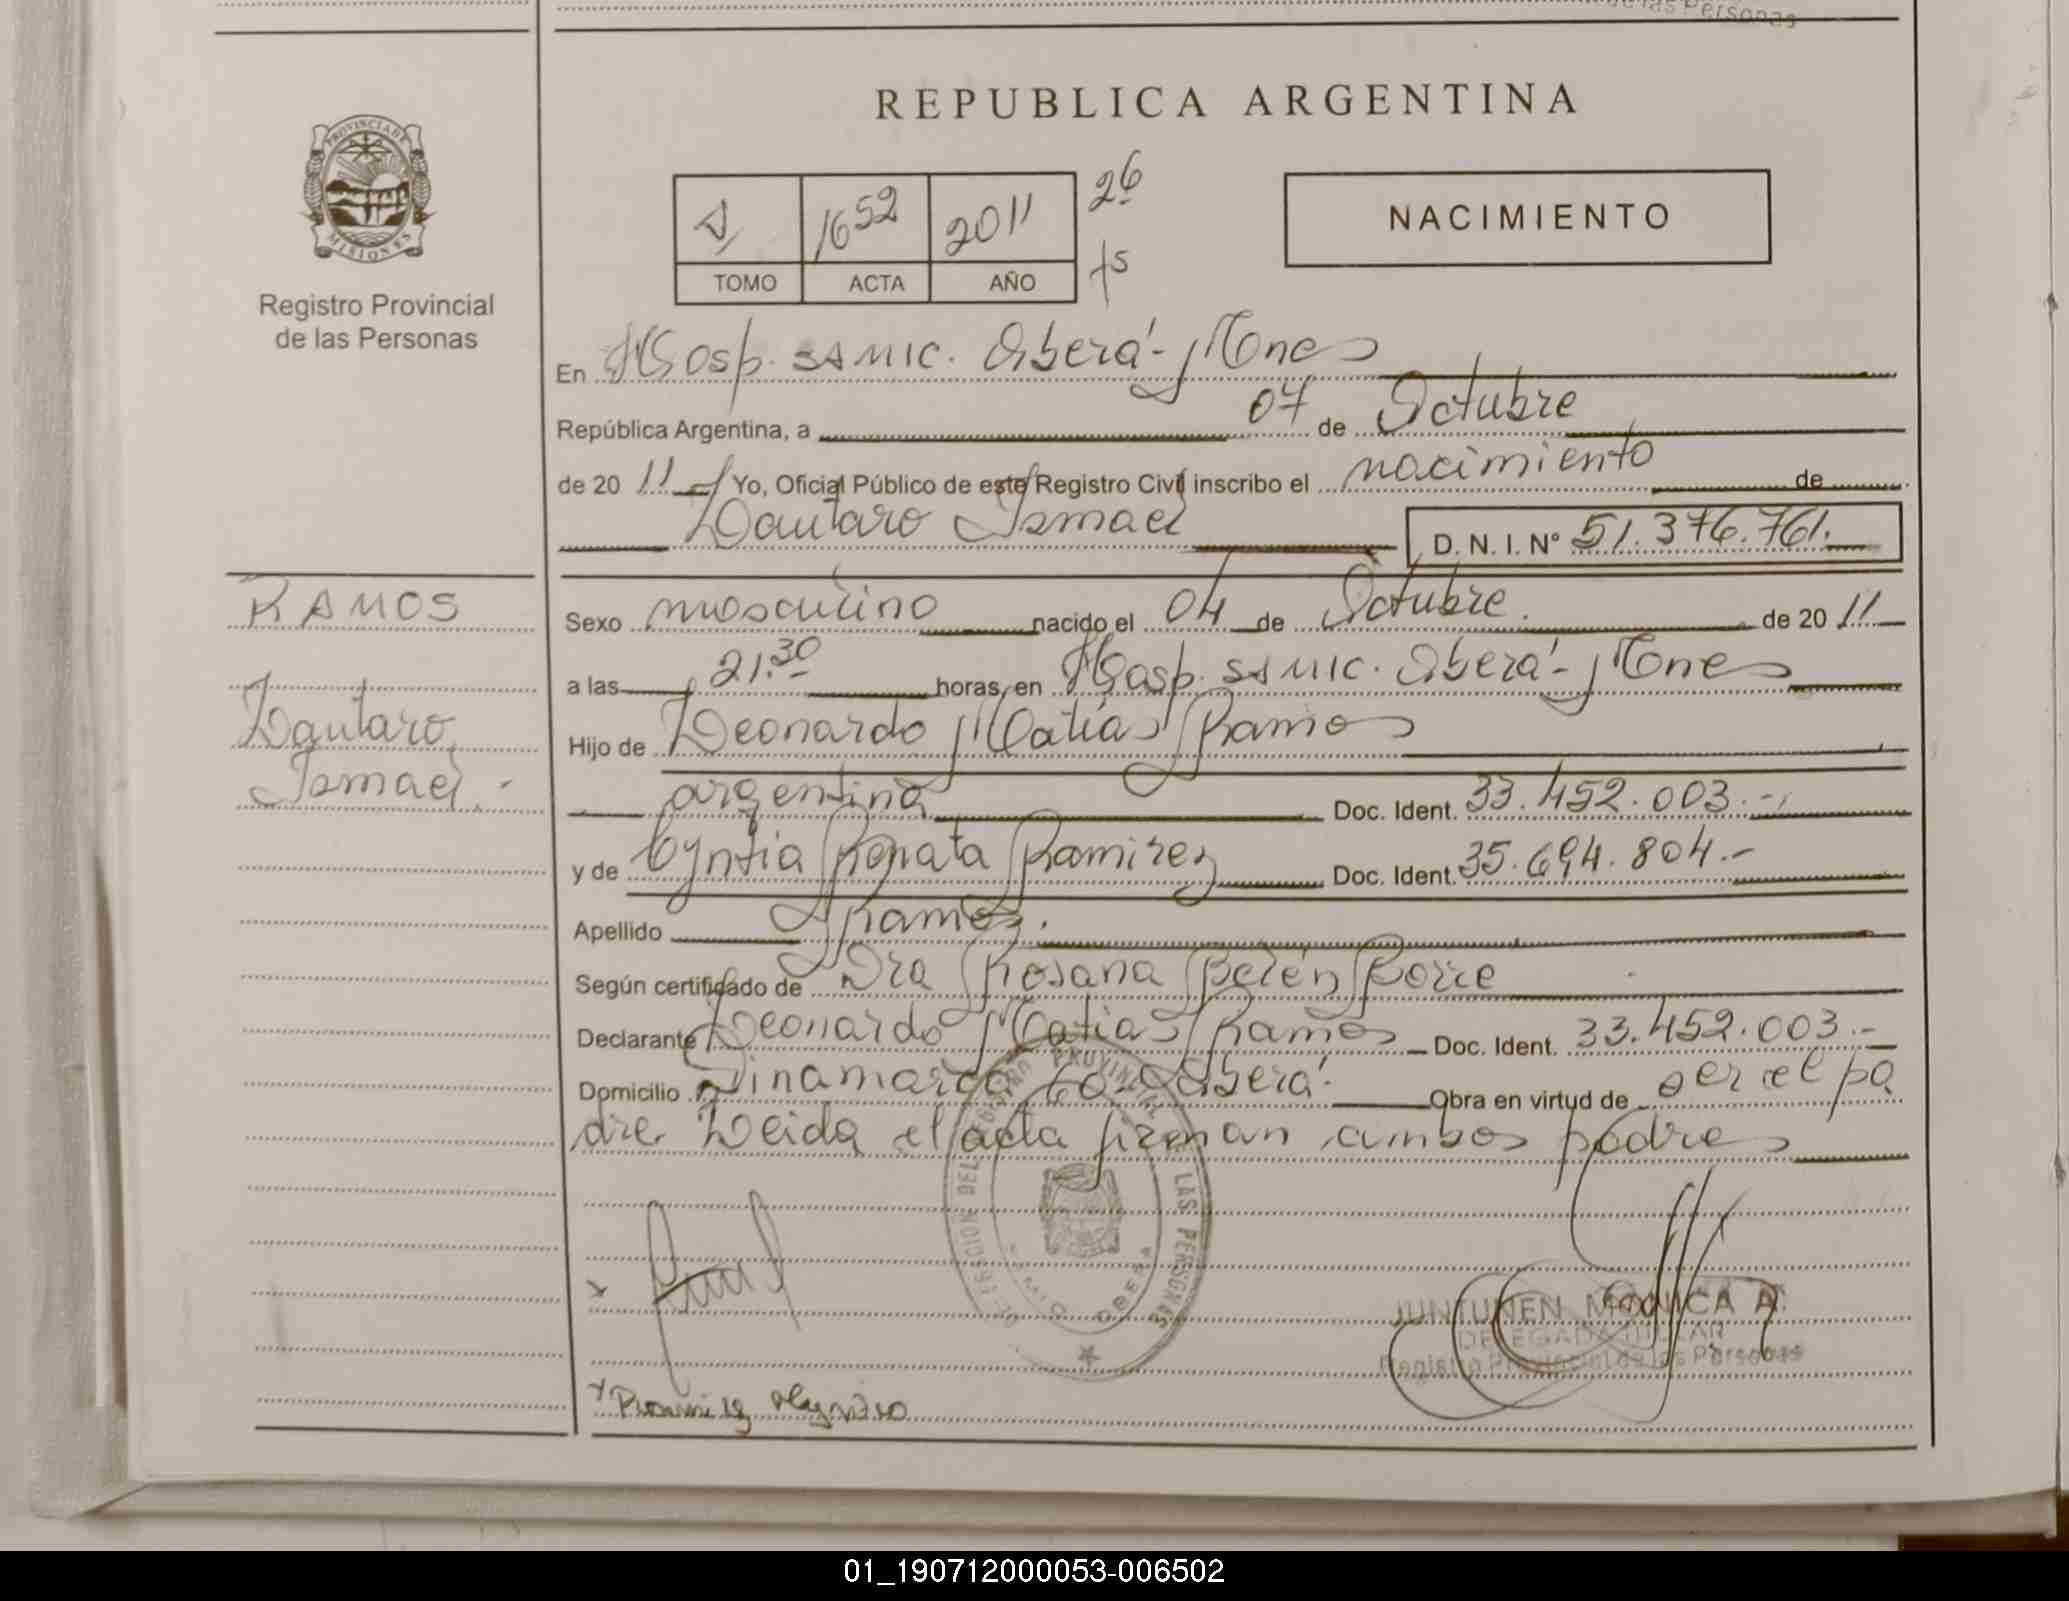 de las Personas
REPUBLICA ARGENTINA
PROVINCIA DE
MISIONES
Registro Provincial
de las Personas
1652 2011 26
TOMO ACTA AÑO
NACIMIENTO
En Hosp. SAMIC. Oberá - Mnes
República Argentina, a 07 de Octubre
de 20 11 Yo, Oficial Público de este Registro Civil inscribo el nacimiento de
Lautaro Ismael D. N. I. N° 51.376.761.
RAMOS
Lautaro
Ismael.-
Sexo masculino nacido el 04 de Octubre. de 20 11
a las 21.30 horas, en Hosp. SAMIC. Oberá - Mnes
Hijo de Leonardo Matías Ramos
argentina Doc. Ident. 33.452.003.-
y de Cyntia Renata Ramirez Doc. Ident. 35.694.804.-
Apellido Ramos.
Según certificado de Dra Rosana Belén
Declarante Leonardo Matias Ramos Doc. Ident. 33.452.003.-
Domicilio Dinamarca Oberá. Obra en virtud de ser el pa
dre. Leida el acta firman ambos padres
DELEGACION DEL REGISTRO PROVINCIAL DE LAS PERSONAS
OBERA
JUNTUNEN MONICA A.
DELEGADA TITULAR
Registro Provincial de las Personas
01_190712000053-006502